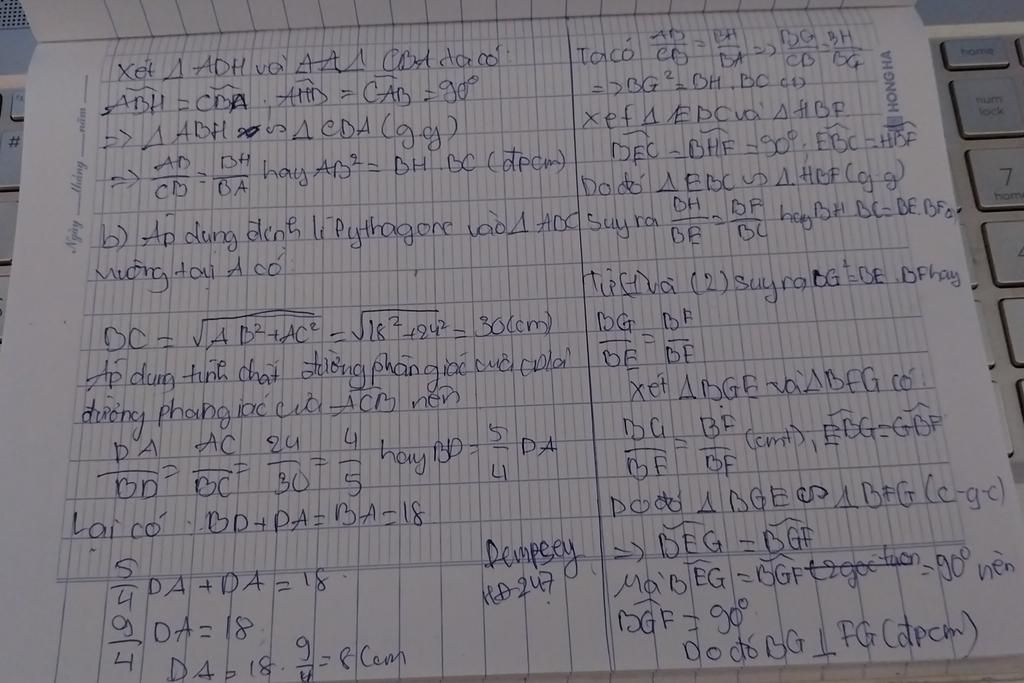 Xét Δ ABH và Δ CBA ta có:
ABH = CBA . AHB = CAB = 90°
=> Δ ABH ∽ Δ CBA (g.g)
=> AB/CB = BH/BA hay AB² = BH.BC (đpcm)
b) Áp dụng định lí Pythagore vào Δ ABC
vuông tại A có:
BC = √AB²+AC² = √18²+24² = 30(cm)
Áp dụng tính chất đường phân giác của
đường phân giác của ACB nên
DA/BD = AC/BC = 24/30 = 4/5 hay BD = 5/4 DA
Lại có: BD + DA = BA = 18
5/4 DA + DA = 18
9/4 DA = 18
DA = 18 . 9/4 = 8(cm
Dempsey
HD-247
Ta có AB/CB = BH/BA => BG/CB = BH/BG
=> BG² = BH . BC (1)
Xét Δ EBC và Δ HBF
BEC = BHF = 90° . EBC = HBF
Do đó Δ EBC ∽ Δ HBF (g.g)
Suy ra BH/BE = BF/BC hay BH.BC = BE.BF
Từ (1) và (2) suy ra BG² = BE . BF hay
BG/BE = BF/BF
Xét Δ BGE và Δ BFG có:
BG/BF = BF/BF (cmt), EBG = GBF
Do đó Δ BGE ∽ Δ BFG (c-g-c)
=> BEG = BGF
Mà BEG = = 90° nên
BGF = 90°
Do đó BG ⊥ FG (đpcm)
Ngày tháng năm
HONG HA
home
num
lock
7
home
#